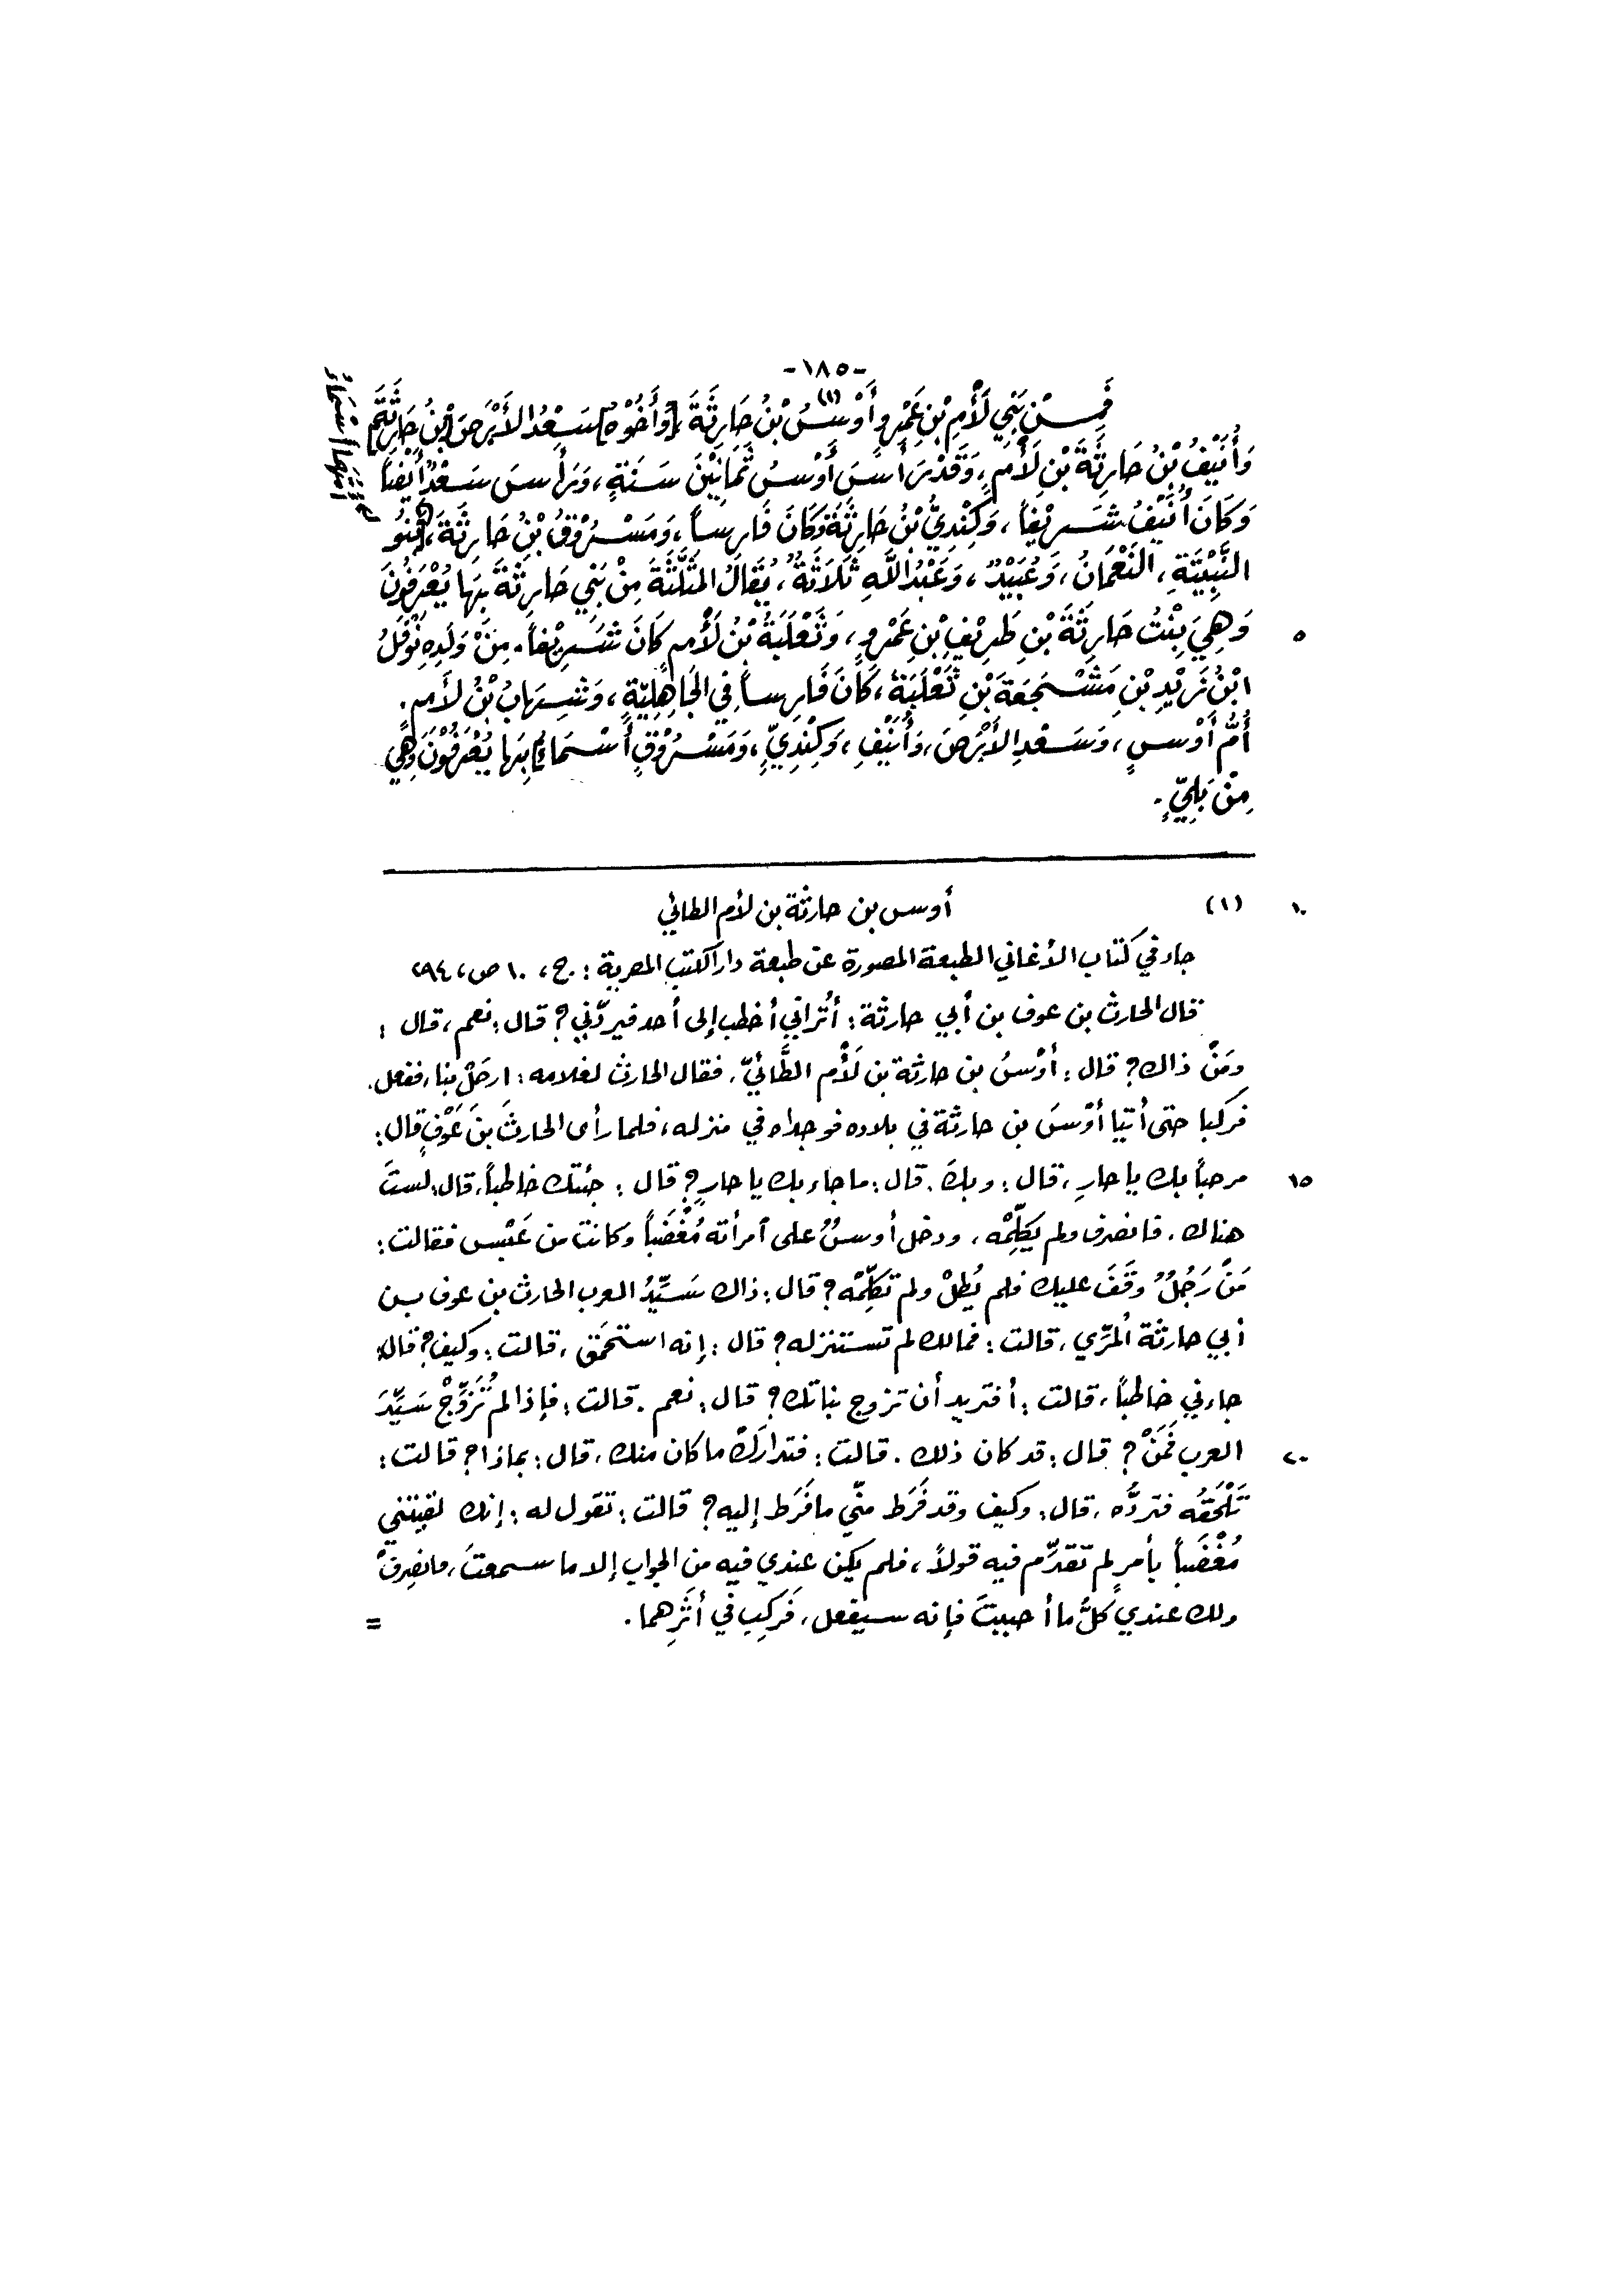 -١٨٥-
فَمِنْ بَنِي لَأْمِ بْنِ عَمْرٍو أَوْسُ(١) بْنُ حَارِثَةَ، [وَأَخُوْهُ] سَعْدُ الأَبْرَصُ بْنُ حَارِثَةَ
وَأُنَيْفُ بْنُ حَارِثَةَ بْنِ لَأْمٍ، وَقَدْ رَأَسَ أَوْسُ ثَمَانِيْنَ سَنَةٍ، وَرَأَسَ سَعْدٌ أَيْضاً
وَكَانَ أُنَيْفُ شَرِيْفاً، وَكِنْدِيُّ بْنُ حَارِثَةَ وَكَانَ فَارِساً، وَمَسْرُوْقُ بْنُ حَارِثَةَ، بَنُو
النَّبِيْتَةِ، النُّعْمَانُ، وَعُبَيْدٌ، وَعَبْدُ اللَّهِ ثَلَاثَةٌ، يُقَالُ المُثَلَّثَةَ مِنْ بَنِي حَارِثَةَ بِهَا يُعْرَفُونَ
وَهِيَ بِنْتُ حَارِثَةَ بْنِ طَرِيْفِ بْنِ عَمْرٍو، وَثَعْلَبَةُ بْنُ لَأْمٍ كَانَ شَرِيْفاً. مِنْ وَلَدِهِ نَوْفَلُ
٥
ابْنُ زَيْدِ بْنِ مَشْجَعَةَ بْنِ ثَعْلَبَةَ، كَانَ فَارِساً فِي الجَاهِلِيَّةِ، وَشِهَابُ بْنُ لَأْمٍ.
أُمُّ أَوْسٍ، وَسَعْدِ الأَبْرَصَ، وَأُنَيْفِ، وَكِنْدِيِّ، وَمَسْرُوْقٍ أَسْمَاءُ بِهَا يُعْرَفُوْنَ وَهِيَ
مِنْ بَلِيٍّ.
أُمُّهَا أَسْمَاءُ
(١) أوس بن حارثة بن لأم الطائي
١٠
جاء في كتاب الأغاني الطبعة المصورة عن طبعة دار الكتب المصرية: ج، ١٠ ص، ٢٩٤
قال الحارث بن عوف بن أبي حارثة: أتُراني أخطب إلى أحد فيردّني؟ قال: نعم، قال:
ومَنْ ذاك؟ قال: أوْسُ بن حارثة بن لَأْم الطَّائيّ، فقال الحارث لغلامه: ارحَلْ بنا، ففعل.
فركبا حتى أتيا أوْسَ بن حارثة في بلاده فوجداه في منزله، فلما رأى الحارثَ بنَ عَوْفٍ قال:
مرحباً بك يا حارِ، قال: وبكَ. قال: ما جاء بك يا حارِ؟ قال: جئتك خاطباً، قال: لستَ
١٥
هناك. فانصرف ولم يكلِّمْه، ودخل أوسٌ على آمرأته مُغْضَباً وكانت من عَبْس فقالت:
مَنْ رَجُلٌ وقَفَ عليك فلم يُطِلْ ولم تكلِّمْه؟ قال: ذاك سَيِّدُ العرب الحارث بن عوف بن
أبي حارثة المُرِّي، قالت: فمالك لم تستنزله؟ قال: إنه استحْمَق، قالت: وكيف؟ قال:
جاءني خاطباً، قالت: أفتريد أن تزوج بناتك؟ قال: نعم. قالت: فإذا لم تُزَوِّجْ سَيِّدَ
العرب فَمَنْ؟ قال: قد كان ذلك. قالت: فتدارَكْ ما كان منك، قال: بماذا؟ قالت:
٢٠
تَلْحَقُه فتردُّه، قال: وكيف وقد فَرَط منّي ما فَرَط إليه؟ قالت: تقول له: إنك لقيتني
مُغْضَباً بأمرٍ لم تقدِّم فيه قولاً، فلم يكن عندي فيه من الجواب إلا ما سمعتَ، فانصرِفْ
ولك عندي كلُّ ما أحببتَ فإنه سيفعل، فَرَكِب في أثَرِهما.
=